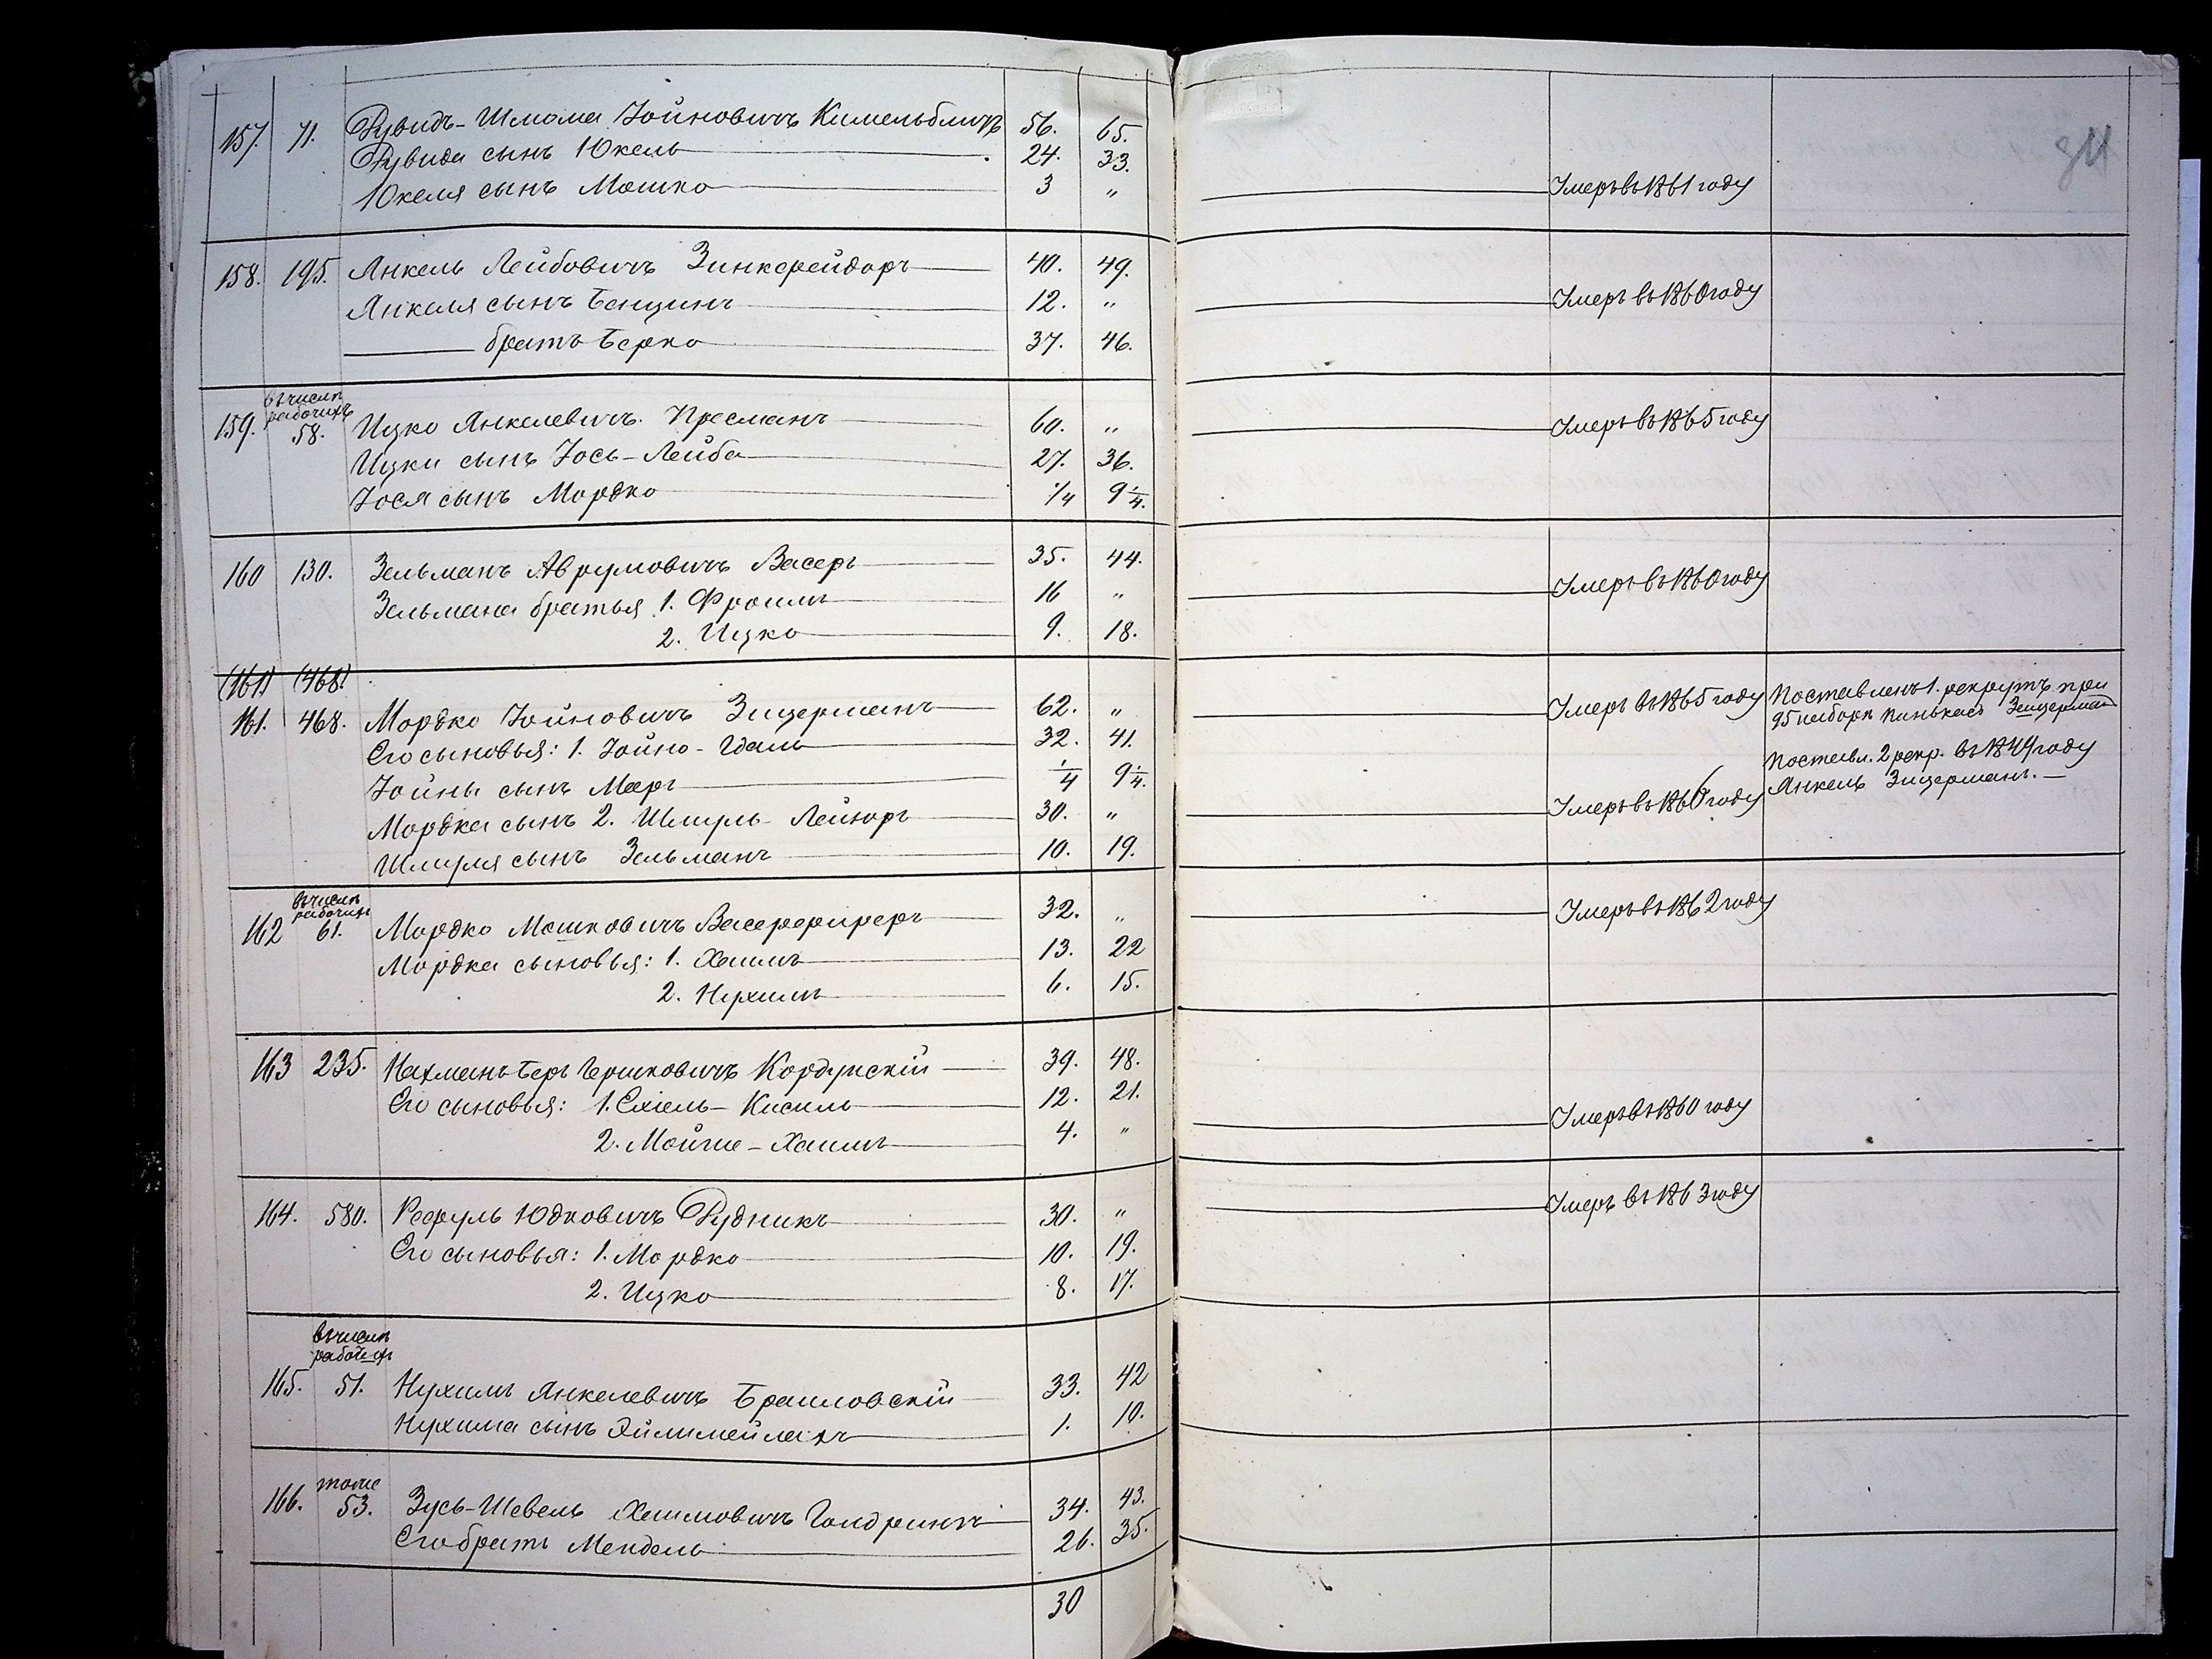 34
157. 71. Дувидъ-Шлома Іойновичъ Кимельблитъ 56. 65.
Дувида сынъ Юкель 24. 33.
Юкеля сынъ Мошко 3 „ Умеръ въ 1861 году
158. 195. Янкель Лейбовичъ 40. 49.
Янкеля сынъ Бенцинъ 12. „ Умеръ въ 1860 году
братъ Берко 37. 46.
въ числѣ
рабочихъ
159. 58. Ицко Янкелевичъ Пресманъ 60. „ Умеръ въ 1865 году
Ицки сынъ Іось-Лейба 27. 36.
Іося сынъ Мордко 1/4 9 1/4.
160 130. Зельманъ Аврумовичъ Васеръ 35. 44.
Зельмана братья 1. Фроимъ 16 „ Умеръ въ 1860 году
2. Ицко 9. 18.
(161) (468)
161. 468. Мордко Іойновичъ Зицерманъ 62. „ Умеръ въ 1865 году Поставленъ 1. рекрутъ при
95 наборѣ Пинькасъ Зицерман
Его сыновья: 1. Іойно-Гдаль 32. 41.
Поставл. 2 рекр. въ 1844 году
Іойны сынъ Меръ 1/4 9 1/4. Янкель Зицерманъ.
Мордка сынъ 2. Шмуль-Лейзоръ 30. „ Умеръ въ 1860 году
Шмуля сынъ Зельманъ 10. 19.
въ числѣ
рабочихъ
162 61. Мордко Мошковичъ 32. „ Умеръ въ 1862 году
Мордка сыновья: 1. Хаимъ 13. 22
2. Нухимъ 6. 15.
163 235. Нахманъ-Беръ Гершковичъ Кордунскій 39. 48.
Его сыновья: 1. Ехіель-Кисиль 12. 21.
2. Мойше-Хаимъ 4. „ Умеръ въ 1860 году
164. 580. Рефуль Юдковичъ Дудникъ 30. „ Умеръ въ 1863 году
Его сыновья: 1. Мордко 10. 19.
2. Ицко 8. 17.
въ числѣ
рабочихъ
165. 51. Нухимъ Янкелевичъ Браиловскій 33. 42
Нухима сынъ Эйлимейлахъ 1. 10.
тоже
166. 53. Зусь-Шевель Хаимовичъ 34. 43.
Его братъ Мендель 26. 35.
30